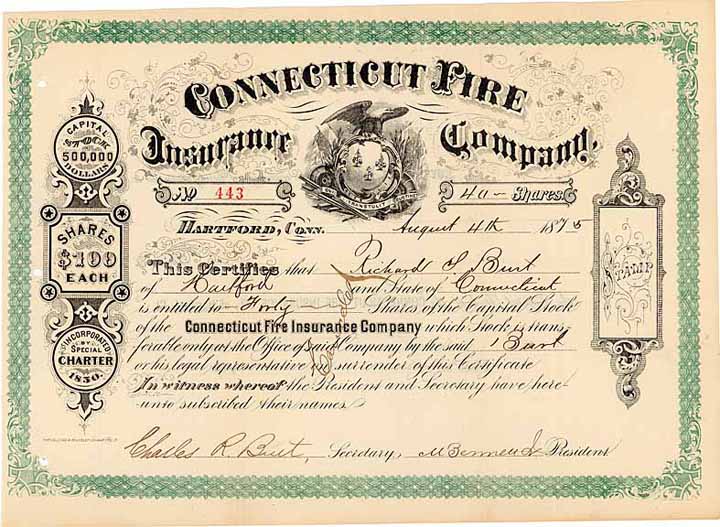 CONNECTICUT FIRE
Insurance Company.
CAPITAL
STOCK
500,000
DOLLARS
No 443
40 - Shares
HARTFORD, CONN. August 4th 1875
SHARES
$100
EACH
This Certifies that Richard S. Burt
of Hartford and State of Connecticut
is entitled to Forty Shares of the Capital Stock
of the Connecticut Fire Insurance Company which Stock is trans
ferable only at the Office of said Company by the said Burt
or his legal representative on surrender of this Certificate
In witness whereof the President and Secretary have here-
unto subscribed their names.
INCORPORATED
BY
SPECIAL
CHARTER
1850.
STAMP
Charles R. Burt, Secretary, M Bennett Jr President